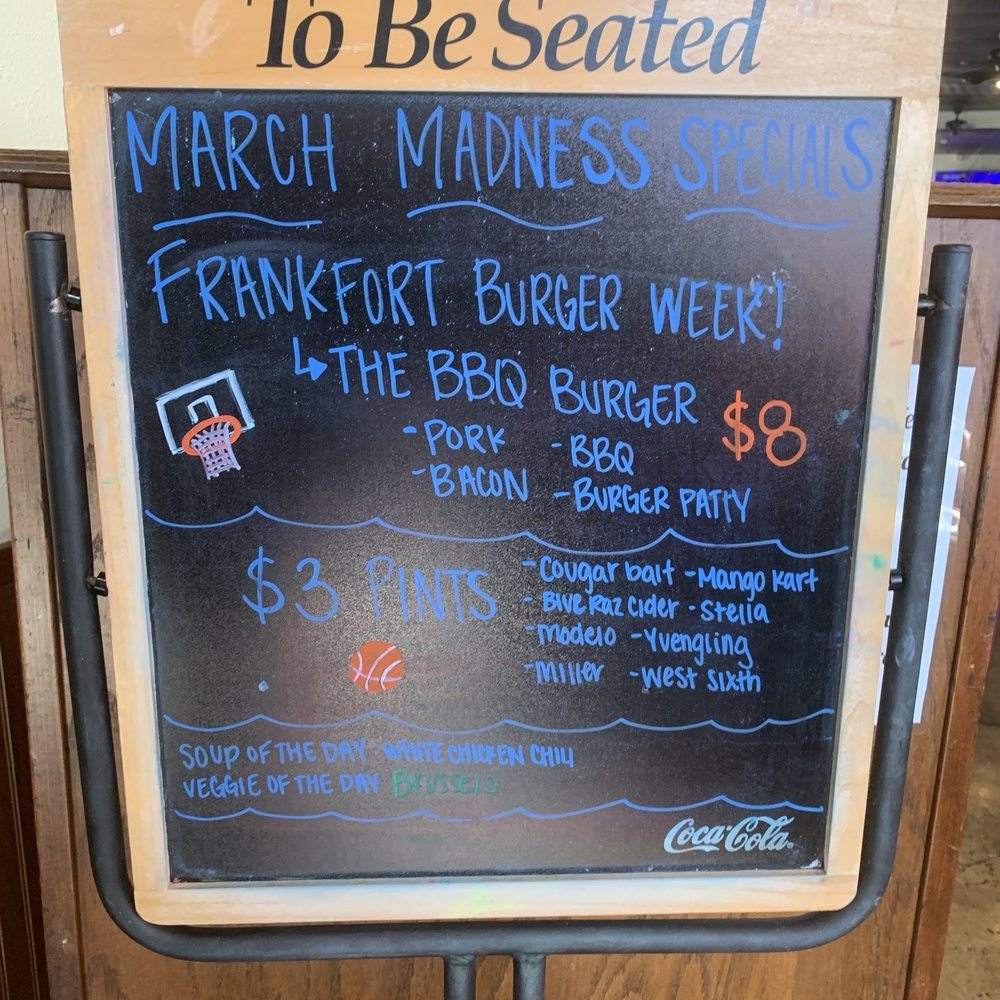 To Be Seated
MARCH MADNESS SPECIALS
FRANKFORT BURGER WEEK!
↳ THE BBQ BURGER $8
- PORK - BBQ
- BACON - BURGER PATTY
$3 PINTS
- Cougar bait - Mango Kart
- Blue Raz Cider - Stella
- Modelo - Yuengling
- Miller - West Sixth
SOUP OF THE DAY WHITE CHICKEN CHILI
VEGGIE OF THE DAY Brussels
Coca-Cola